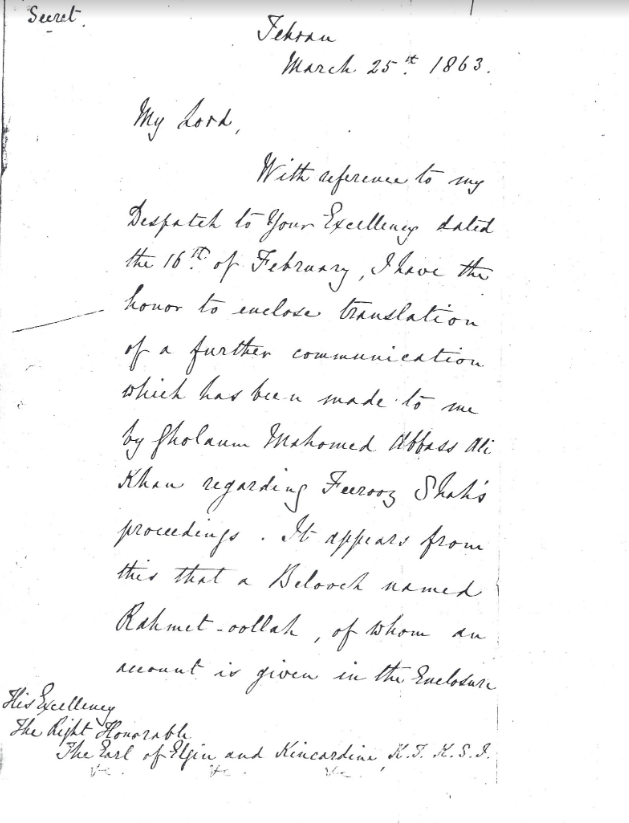 Secret.
Tehran
March 25th 1863.
My Lord,
With reference to my
Despatch to Your Excellency dated
the 16th of February, I have the
honor to enclose translation
of a further communication
which has been made to me
by Gholaum Mahomed Abbass Ali
Khan regarding Feerooz Shah's
proceedings. It appears from
this that a Belooch named
Rahmet-oollah, of whom an
account is given in the Enclosure
His Excellency
The Right Honorable
The Earl of Elgin and Kincardine, K.T. K.S.I.
&c. &c. &c.